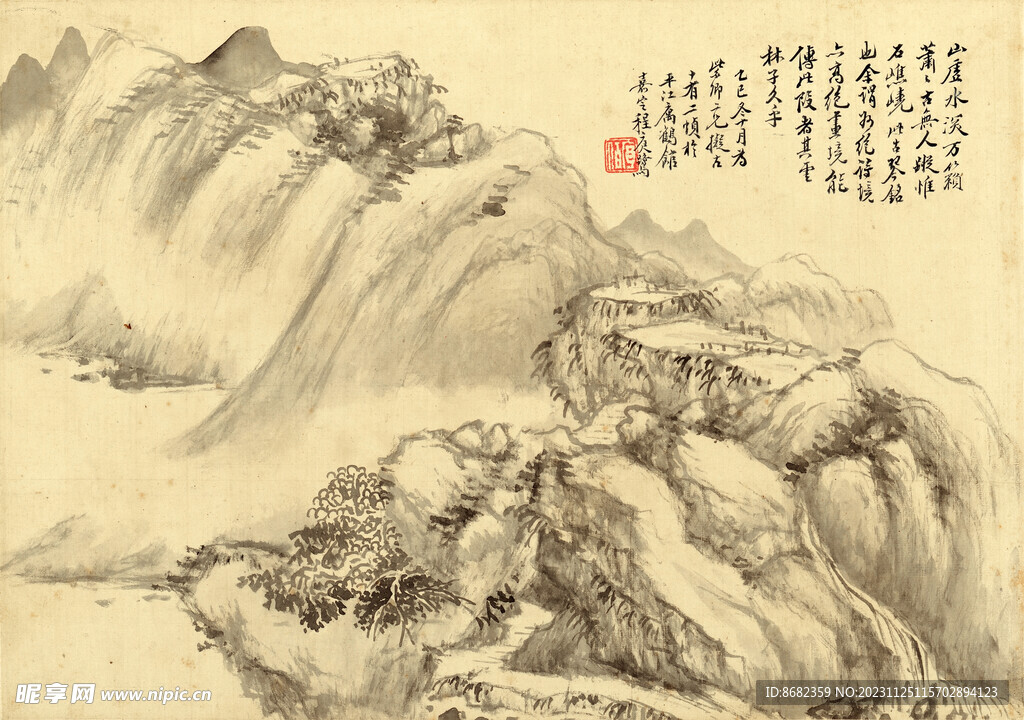 山虛水深万籟
蕭〻古無人蹤惟
石嶕嶢此古琴銘
也余謂为絕詩境
亦高絕畫境能
傳此段者其雲
林子久乎
乙巳冬十月为
紫卿二兄擬古
十有二幀於
平江寓鶴館
嘉定程庭鷺
昵享网 www.nipic.cn
ID:8682359 NO:20231125115702894123